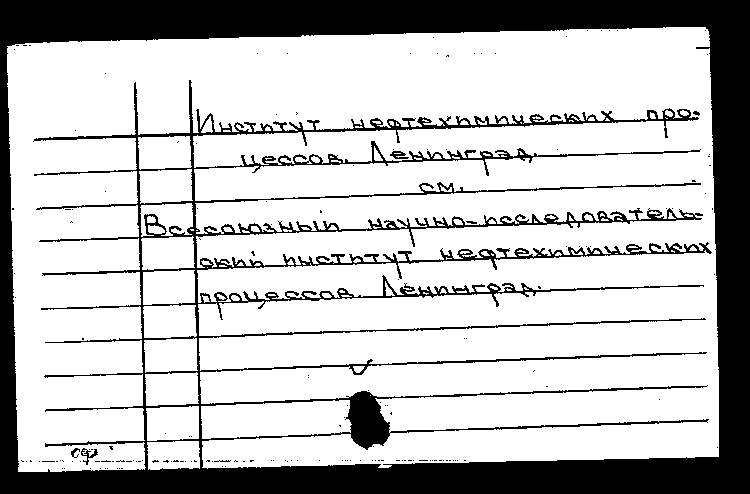 Институт нефтехимических про-
цессов. Ленинград.
см.
Всесоюзный научно-исследователь-
ский институт нефтехимических
процессов. Ленинград.